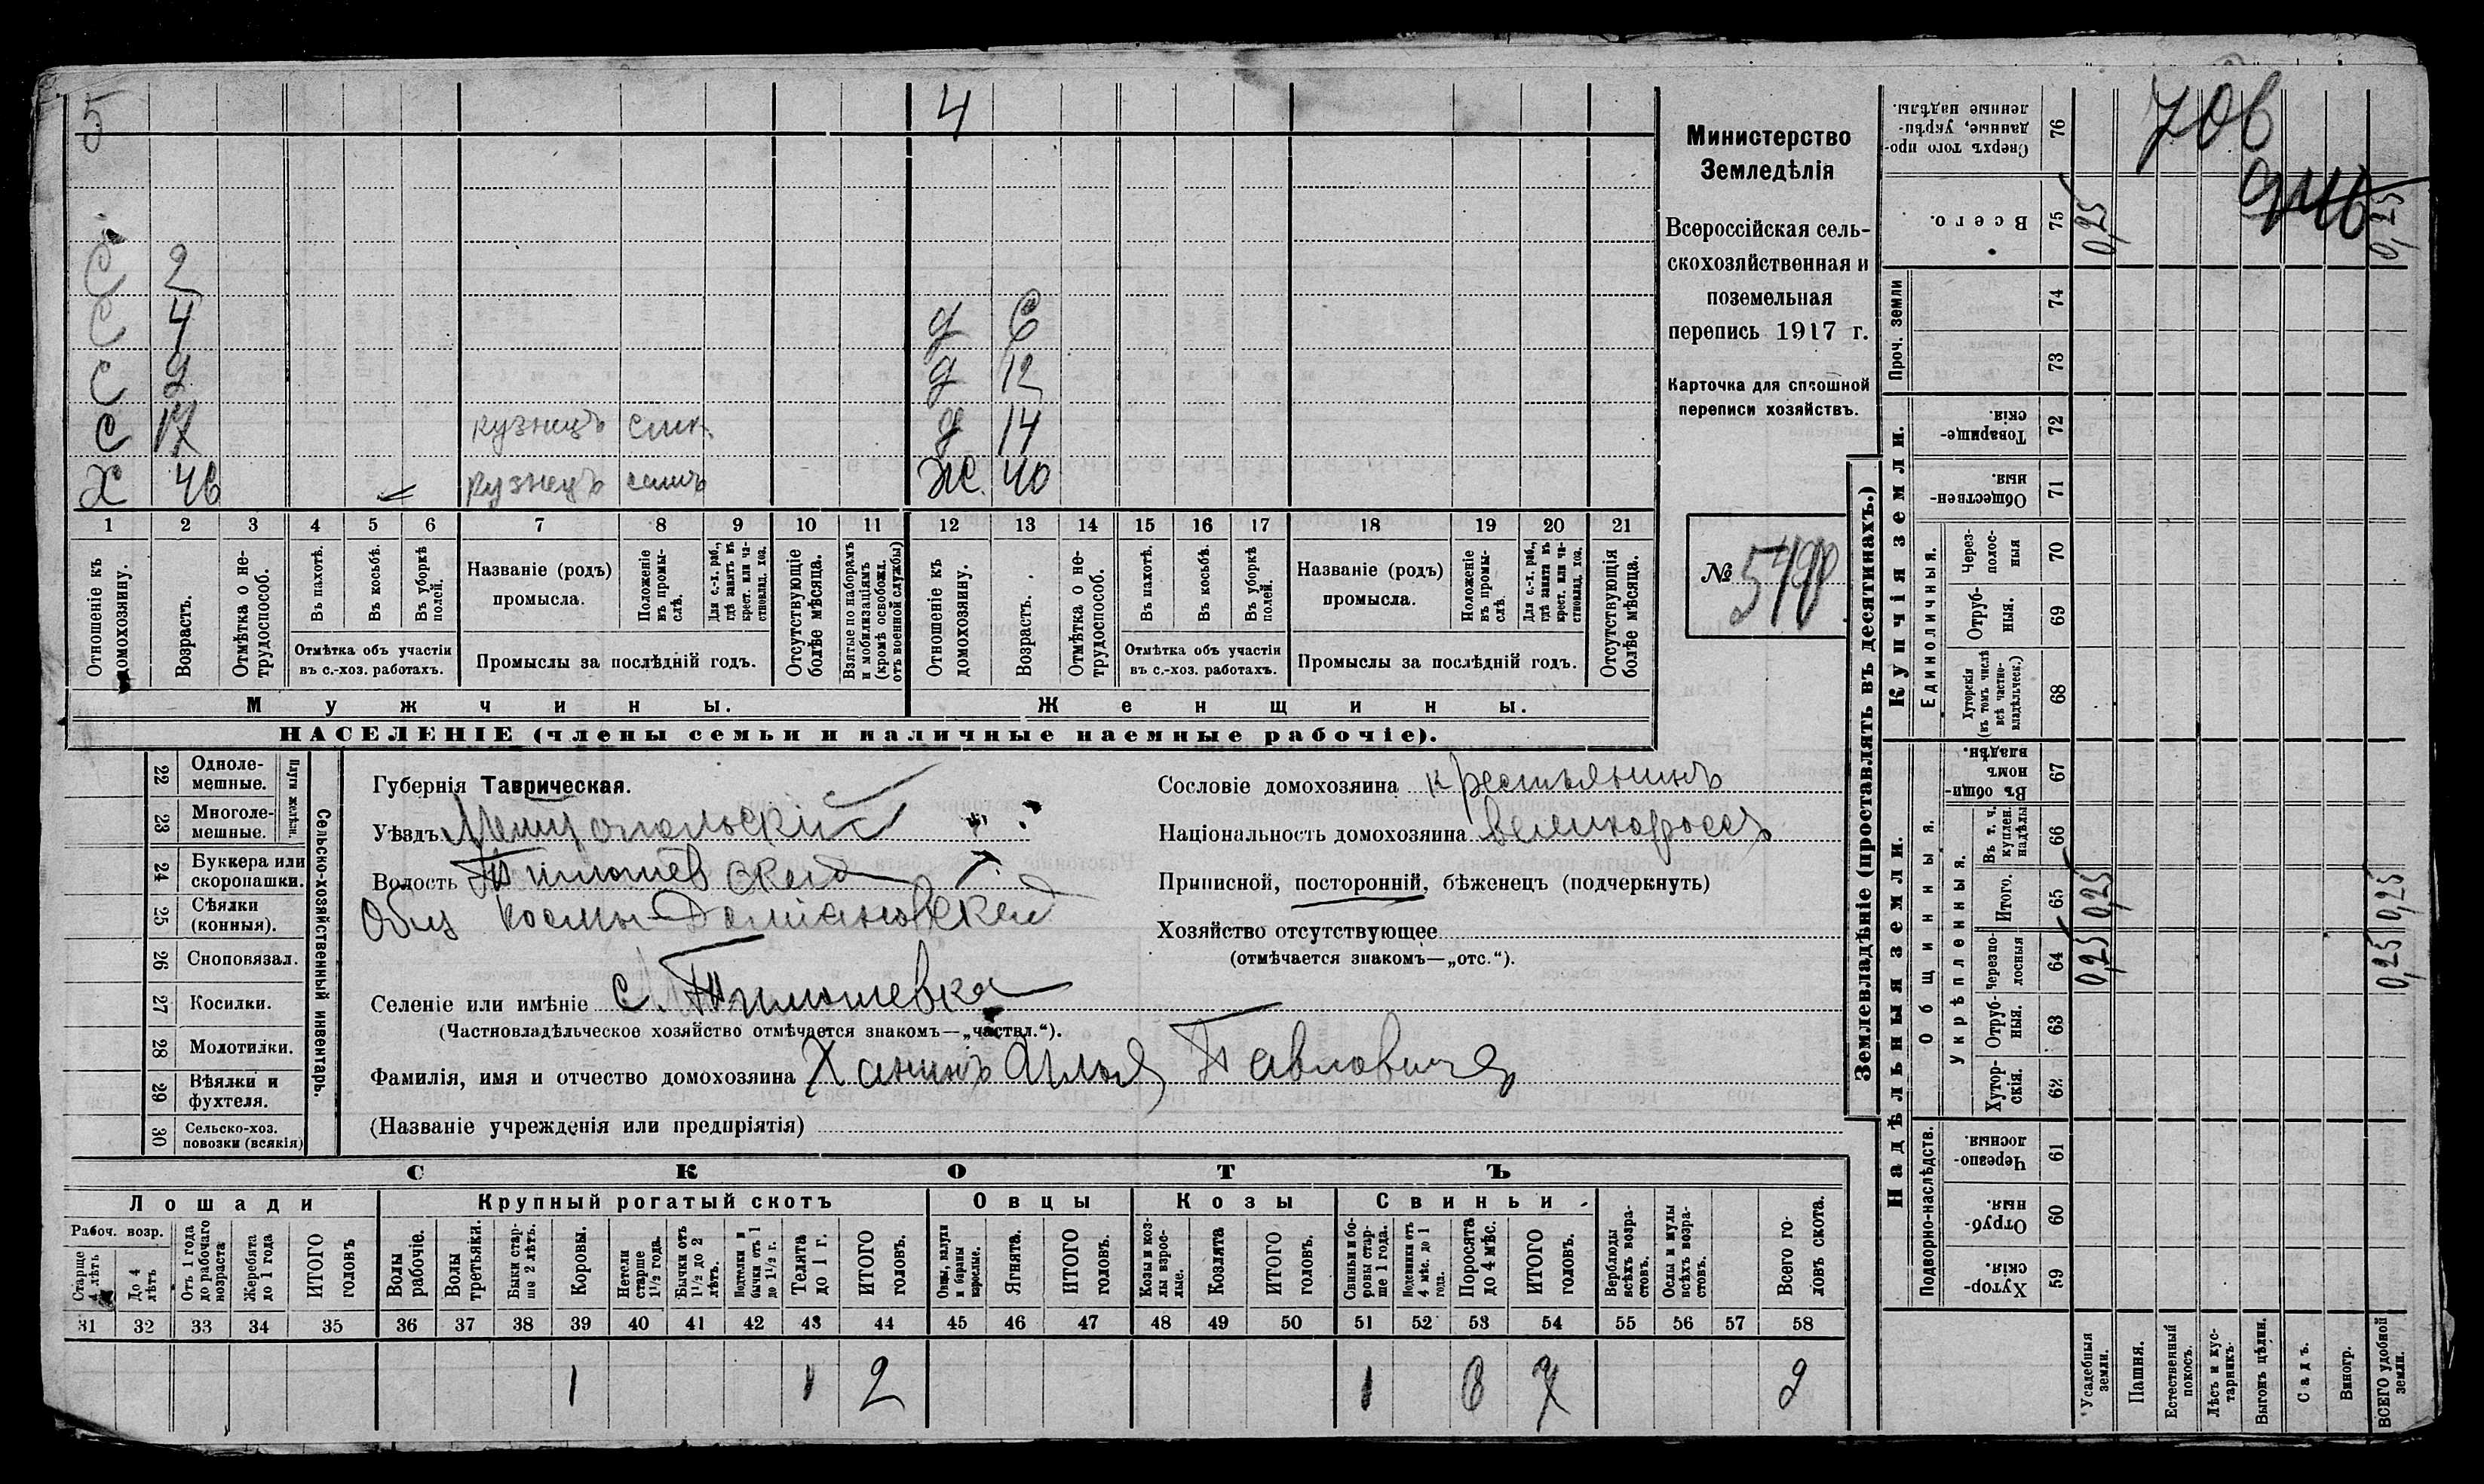 5 4
С 2
С 4 д 6
С 9 д 12
С 17 кузнецъ д 14
Х 46 кузнецъ самъ Ж. 40
1 2 3 4 5 6 7 8 9 10 11 12 13 14 15 16 17 18 19 20 21
Отношеніе къ домохозяину.
Возрастъ.
Отмѣтка о не-трудоспособ.
Въ пахотѣ.
Въ косьбѣ.
Въ уборкѣ полей.
Отмѣтка объ участіи
въ с.-хоз. работахъ.
Названіе (родъ)
промысла.
Положеніе въ промы-слѣ.
Для с.-х. раб., гдѣ занятъ въ крест. или ча-стновлад. хоз.
Промыслы за послѣдній годъ.
Отсутствующіе болѣе мѣсяца.
Взятые по наборамъ и мобилизаціямъ (кромѣ освобожд. отъ военной службы)
Отношеніе къ домохозяину.
Возрастъ.
Отмѣтка о не-трудоспособ.
Въ пахотѣ.
Въ косьбѣ.
Въ уборкѣ полей.
Отмѣтка объ участіи
въ с.-хоз. работахъ.
Названіе (родъ)
промысла.
Положеніе въ промы-слѣ.
Для с.-х. раб., гдѣ занята въ крест. или ча-стновлад. хоз.
Промыслы за послѣдній годъ.
Отсутствующія болѣе мѣсяца.
Мужчины. Женщины.
НАСЕЛЕНІЕ (члены семьи и наличные наемные рабочіе).
Министерство
Земледѣлія
Всероссійская сель-
скохозяйственная и
поземельная
перепись 1917 г.
Карточка для сплошной
переписи хозяйствъ.
№
22 Одноле-мешные.
23 Многоле-мешные.
Плуги желѣзн.
24 Буккера или скоропашки.
25 Сѣялки (конныя).
26 Сноповязал.
27 Косилки.
28 Молотилки.
29 Вѣялки и фухтеля.
30 Сельско-хоз. повозки (всякія)
Сельско-хозяйственный инвентарь.
Губернія Таврическая.
Уѣздъ Мелитопольскій
Волость Тимошевская
Общ Космы-Даміановская
Селеніе или имѣніе с. Тимошевка
(Частновладѣльческое хозяйство отмѣчается знакомъ—„частвл.“).
Фамилія, имя и отчество домохозяина Ханинъ Илья Павловичъ
(Названіе учрежденія или предпріятія)
Сословіе домохозяина крестьянинъ
Національность домохозяина великороссъ
Приписной, посторонній, бѣженецъ (подчеркнуть)
Хозяйство отсутствующее
(отмѣчается знакомъ—„отс.“).
СКОТЪ
Лошади Крупный рогатый скотъ Овцы Козы Свиньи
Рабоч. возр.
Старше 4 лѣтъ
До 4 лѣтъ
Отъ 1 года до рабочаго возраста
Жеребята до 1 года
ИТОГО головъ
Волы рабочіе.
Волы третьяки.
Быки стар-ше 2 лѣтъ.
Коровы.
Нетели старше 1½ года.
Бычки отъ 1½ до 2 лѣтъ.
Подтелки и бычки отъ 1 до 1½ г.
Телята до 1 г.
ИТОГО головъ.
Овцы, валухи и бараны взрослые.
Ягнята.
ИТОГО головъ.
Козы и коз-лы взрос-лые.
Козлята
ИТОГО головъ.
Свиньи и бо-ровы стар-ше 1 года.
Подсвинки отъ 4 мѣс. до 1 года.
Поросята до 4 мѣс.
ИТОГО головъ.
Верблюды всѣхъ возра-стовъ.
Ослы и мулы всѣхъ возра-стовъ.
Всего го-ловъ скота.
31 32 33 34 35 36 37 38 39 40 41 42 43 44 45 46 47 48 49 50 51 52 53 54 55 56 57 58
1 1 2 1 6 7 9
Землевладѣніе (проставлять въ десятинахъ.)
Купчія земли.
Надѣльныя земли.
Проч. земли
Единоличныя.
Общинныя.
укрѣпленныя.
Подворно-наслѣдств.
Сверхъ того про-данные, укрѣп-ленные надѣлы. 76
Всего. 75 0,25 0,25
74
73
Товарище-скія. 72
Обществен-ныя. 71
Через-полос-ныя 70
Отруб-ныя. 69
Хуторскія (въ томъ числѣ всѣ частно-владѣльческ.) 68
Въ общин-номъ владѣн. 67
Въ т. ч. куплен. надѣлы 66
Итого. 65 0,25 0,25
Черезпо-лосныя 64 0,25 0,25
Отруб-ныя. 63
Хутор-скія. 62
Черезпо-лосныя. 61
Отруб-ныя. 60
Хутор-скія. 59
Усадебныя земли.
Пашня.
Естественный покосъ.
Лѣсъ и кус-тарникъ.
Выгонъ цѣлин.
Садъ.
Виногр.
ВСЕГО удобной земли.